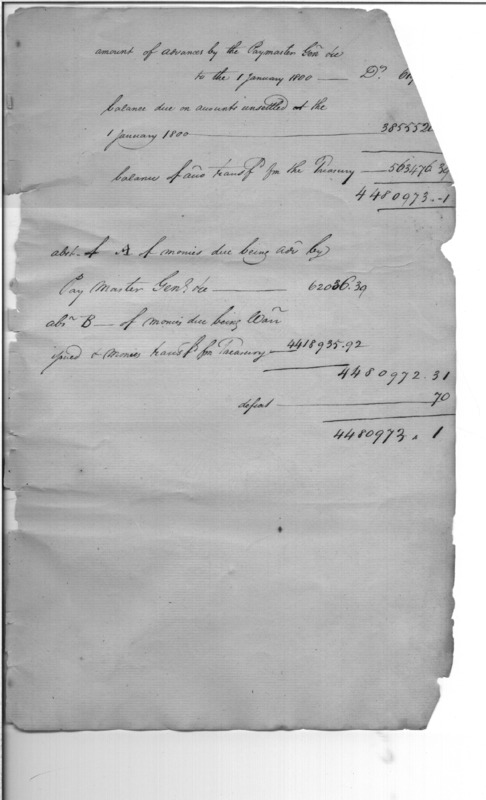 amount of advances by the Paymaster Genl &c
to the 1 January 1800 — Ds. 61
balance due on accounts unsettled at the
1 January 1800 — 385552
balance of accts transfd from the Treasury — 563476.39
4480973.-1
abst. of A of monies due being advd by
Pay Master Genl &c — 62036.39
abst B — of monies due being Warrts
issued & monies transfd from Treasury — 4418935.92
4480972.31
deficit — 70
4480973.1